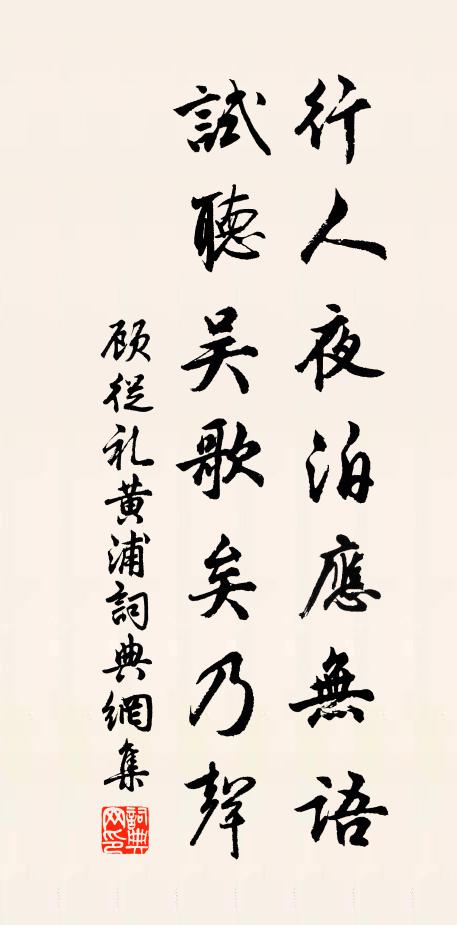 行人夜泊應無語
試聽吴歌矣乃聲
顾從礼黄浦詞典網集
詞典网印